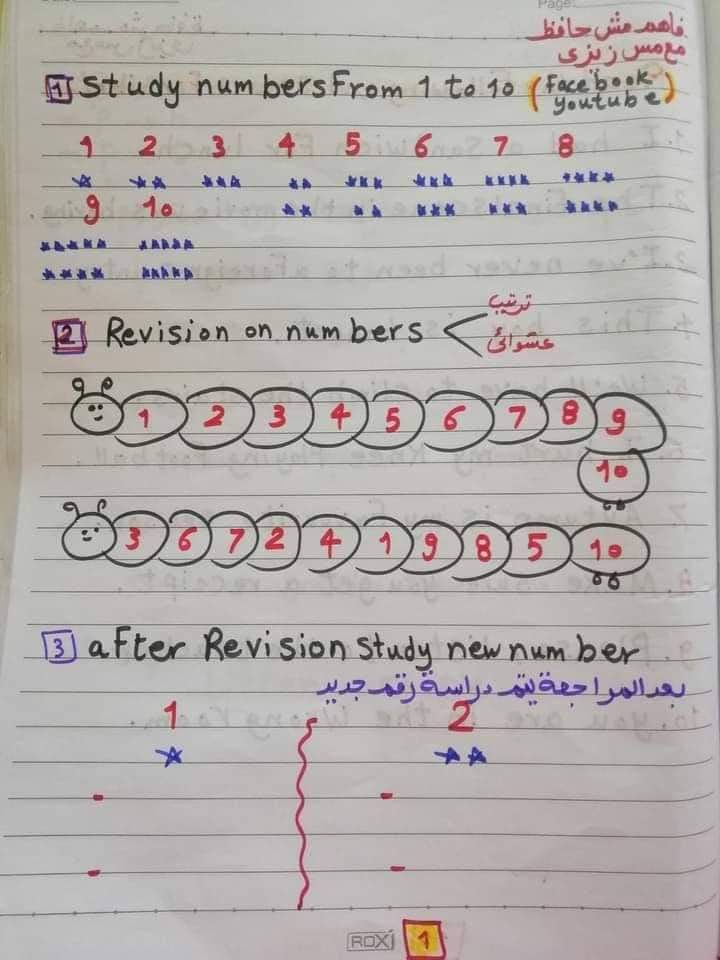 Page:
فاهم مش حافظ
مع مس زيزى
1 Study numbers From 1 to 10 (Facebook
youtube)
1 2 3 4 5 6 7 8
9 10
2 Revision on numbers < ترتيب
عشوائى
1 2 3 4 5 6 7 8 9
10
3 6 7 2 4 1 9 8 5 10
3 after Revision study new number
بعد المراجعة يتم دراسة رقم جديد
1 2
- -
- -
ROXI 1